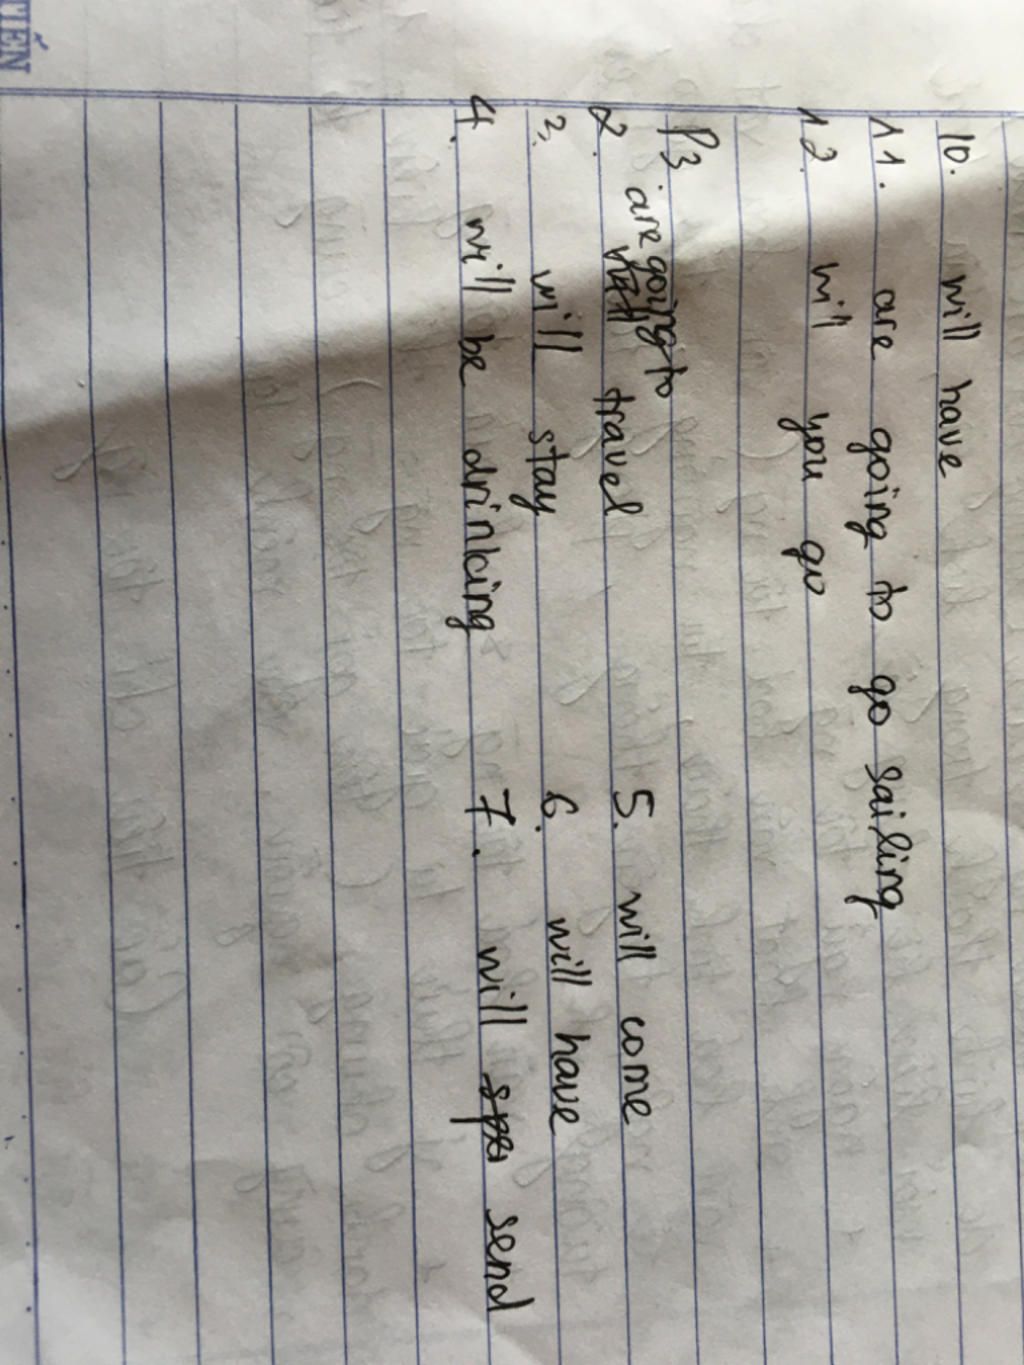 TIẾN
10. will have
11. are going to go sailing
12. will you go
P3
are going to
2. will travel 5. will come
3. will stay 6. will have
4. will be drinking 7. will spe send